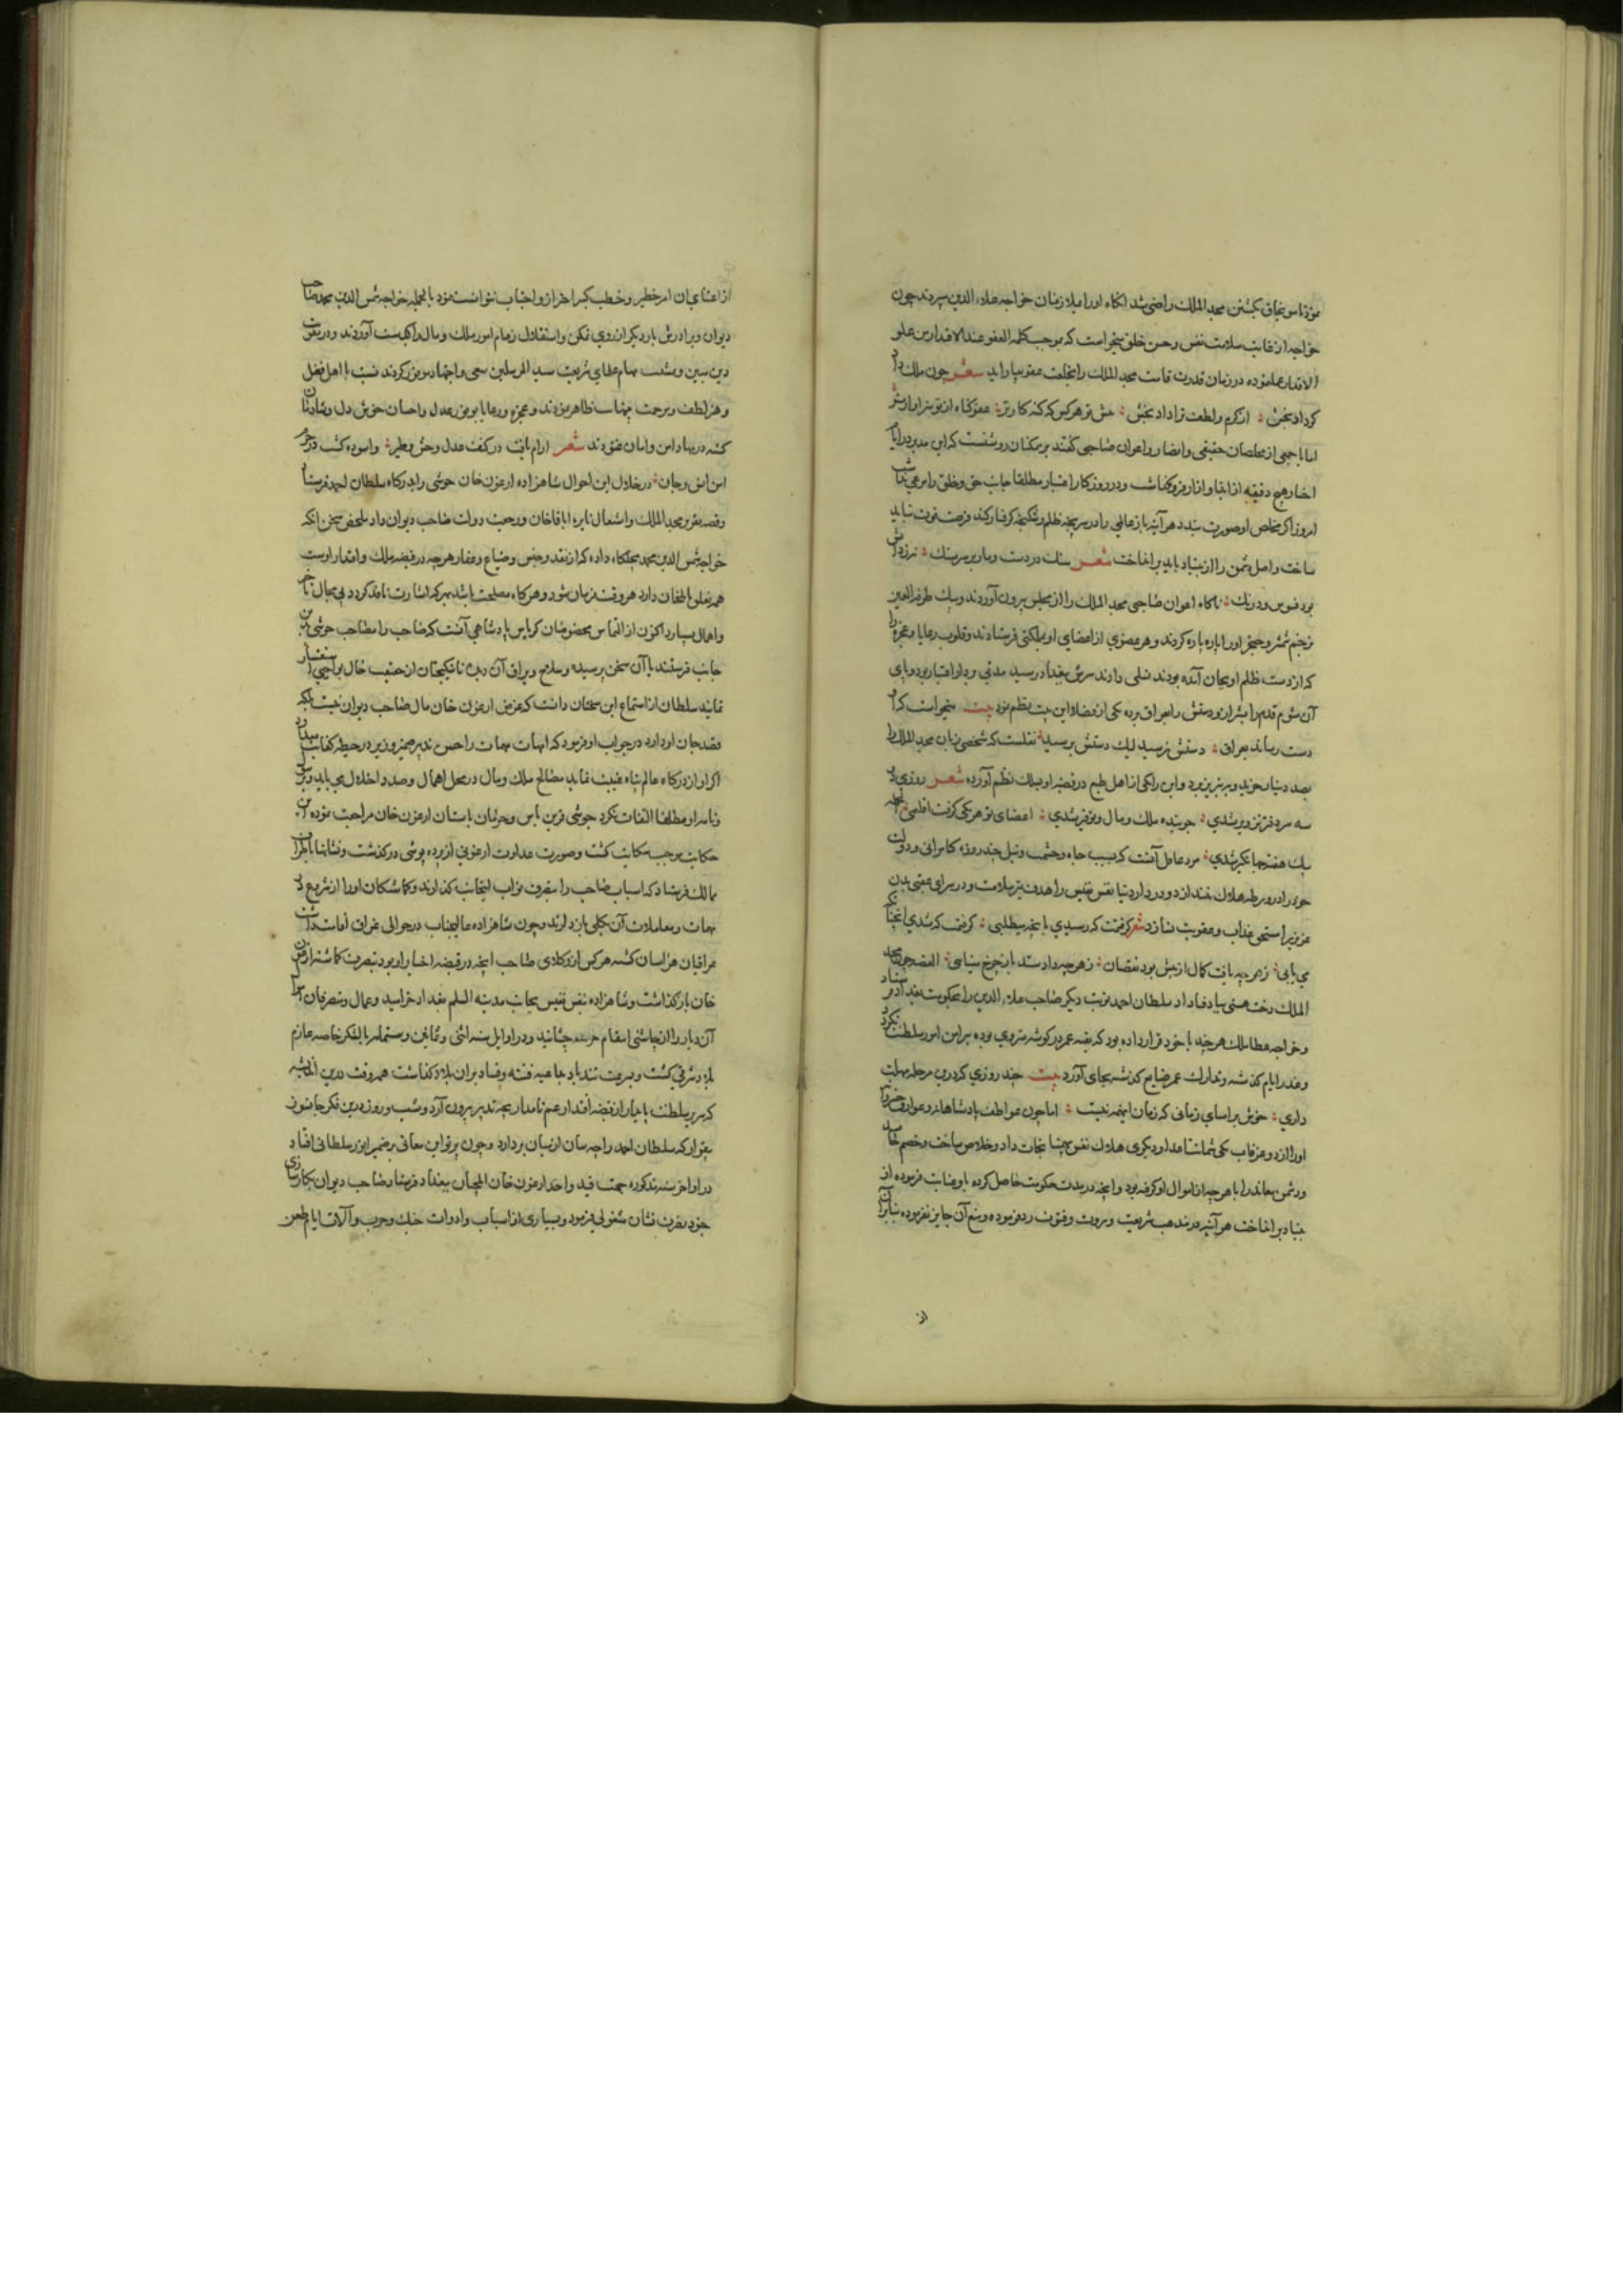 سونجاق بکشتن مجد الملک راضی شد انکاه اورا بملازمان خواجه علاء الدین سپردند چون
خواجه از غایت سلامت نفس و حسن خلق میخواست که بموجب کلمه العفو عند الاقدار من علو
الاقدار عمل نموده در زمان قدرت قامت مجد الملک را بخلعت عفو بیاراید شعر چون ملک
کرد از کرم و لطف ترا داد بخش هرکس که کنه کارتر عفو کناه از تو
اما با جمعی از مخلصان حقیقی و انصار و اعوان صاحبی گفتند بر همکنان روشنست که این مدبر در ایام
اختیار هیچ دقیقه از ایذا و ازار فرو نکذاشت و در روزکار اعتبار مطلقا جانب حق و خلق را مرعی
امروز اگر خلاص او صورت بندد هر آینه باز عالمی را در سرپنجه ظلم و شکنجه گرفتار کند فرصت فوت نباید
ساخت و اصل دشمن را از بنیاد باید برانداخت شعر سنک در دست و مار بر سر سنک
بود فسوس و درنک ناکاه اعوان صاحبی مجد الملک را از مجلس بیرون آوردند و بیک طرفة العین
بزخم شمشیر و خنجر اورا پاره پاره کردند و هر عضوی از اعضای او بملکتی فرستادند و قلوب رعایا و عجزه را
که از دست ظلم او بجان آمده بودند تسلی دادند سرش ببغداد رسید مدتی بر دار اعتبار بود و پای
آن شوم قدم را بشیراز و دستش را بعراق برده یکی از فضلا این بیت نظم نمود بیت میخواست که او
دست رساند بعراق دستش نرسید لیک دستش برسید نقلست که شخصی زبان مجد الملک را
بصد دینار خرید و به تبریز برد و این را یکی از اهل طبع در قضیه او بسلک نظم آورده شعر روزی دو
سه سر دفتر تزویر شدی جوینده ملک و مال و توفیر شدی اعضای تو هر یکی کرفت اقلیمی
یک هفته جهانگیر شدی مرد عاقل آنست که بسبب جاه و حشمت و نیل چند روزه کامرانی و دولت
خود را در ورطه هلاک نیندازد و در دار دنیا نفس نفیس را هدف تیر ملامت و در سرای عقبی بدن
عزیز را مستحق عذاب و عقوبت نسازد شعر کرفتت که رسیدی بانچه میطلبی کرفت که شدی
می یابی نه هر چه یافت کمال از پیش بود نقصان نه هر چه داد ستد باز چرخ مینایی القصه چون مجد
الملک رخت هستی بباد فنا داد سلطان احمد نوبت دیکر صاحب علاء الدین را بحکومت بغداد فرستاد
و خواجه عطاملک هر چند با خود قرار داده بود که بقیه عمر در کوشه منزوی بوده پیرامن امور سلطنت نکردد
و عذر ایام کذشته و تدارک عمر ضایع کذشته بجای آورد بیت چند روزی که درین مرحله مهلت
داری خوش برآسای زمانی که زمان اینهمه نیست اما چون عواطف پادشاهانه و عوارف خسروانه
اورا از دو غرقاب یکی شماتت اعدا و دیکری هلاک نفس بیهمتا نجات داد و خلاص ساخت و خصم حاسد
و دشمن معاند را با هر چه از اموال او کرفته بود و انچه در مدت حکومت حاصل کرده باو عنایت فرموده از
بنیاد بر انداخت هر آینه در مذهب شریعت و مروت و فتوت رد فرموده و منع آن جایز نفرموده بنابران
از
از اعتنای ان امر خطیر و خطب کبیر احتراز و اجتناب نتوانست نمود بالجمله خواجه شمس الدین محمد صاحب
دیوان و برادرش بار دیکر از روی تمکن و استقلال زمام امور ملک و مال را بکف آوردند و در تقویت
دین مبین و مهام عظای شریعت سید المرسلین سعی و اجتهاد موفور کردند نسبت با اهل فضل
و هنر لطف و مرحمت بینهایت ظاهر نمودند و عجزه و رعایا بوفور عدل و احسان خوش دل و شادمان
کشته در مهاد امن و امان غنودند شعر ارام یافت در کنف عدل وحش و طیر واسوده کشت در حرم
امن انس و جان در خلال این احوال شاهزاده ارغون خان جوشی را بدرکاه سلطان احمد فرستاد
و قصه تقریر مجد الملک و اشتعال نایره اباقاخان و رجعت دولت صاحب دیوان داد ملخص سخن انکه
خواجه شمس الدین محمد مچلکا داده که از نقد و جنس و ضیاع و عقار هر چه در قبضه ملک و اقتدار اوست
همه تعلق بایلخان دارد هر وقت فرمان شود و هرکاه مصلحت باشد بهر که اشارت نافذ کردد بی مجال تاخیر
و اهمال بسپارد اکنون از التماس بحضور شان کریاس پادشاهی آنست که صاحب را مصاحب جوشی بدین
جانب فرستند تا آن سخن پرسیده
نماید سلطان از استماع این سخنان دانست که غرض ارغون خان مال صاحب دیوان نیست بلکه
قصد جان او دارد در جواب او فرمود که امهات مهمات را حسن تدبیر وزیر در حیطه کفایت میدارد
اکر او از درکاه عالم پناه غیبت نماید مصالح ملک و مال در محل اهمال و صدد اخلال می باید
و نام او مطلقا التفات نکرد جوشی قرین یاس و حرمان باستان ارغون خان مراجعت نموده این
حکایت موجب شکایت کشت و صورت عداوت ارغونی از پرده پوشی در کذشت و نشانها باطراف
ممالک فرستاد که اسباب صاحب را بتصرف نواب اینجانب کذارند و کماشتکان اورا از شروع در
مهمات و معاملات آن بکلی باز دارند و چون شاهزاده عالیجناب در حوالی عراق اقامت داشت
عراقیان هراسان کشته هر کس از وکلای صاحب انچه در قبضه اختیار او بود بتصرف کماشته ارغون
خان باز کذاشت و شاهزاده بنفس نفیس بجانب مدینة السلم بغداد خرامید و عمال و متصرفان
آن دیار را از چاشنی انتقام جرعه چشانید و در اوایل سنه اثنی و ثمانین و ستمایه با لشکر خاصه عازم
بلاد شرقی کشت و بسرعت تندباد بداعیه فتنه و فساد بران بلاد کذاشت همه وقت درین اندیشه
که سریر سلطنت پایدار از قبضه اقتدار عم نامدار بچه تدبیر بیرون آرد و شب و روز درین فکر جانسوز
بیقرار که سلطان احمد را چه سان از میان بردارد و چون پرتو این معانی بر ضمیر انور سلطانی افتاد
در اواخر سنه مذکوره جهت قید و اخذ ارغون خان ایلچیان ببغداد فرستاد و صاحب دیوان بکارسازی
جزء نفرت نشان مشغولی فرمود و بسیاری از اسباب و ادوات جنک و حرب و آلات ایام طعن